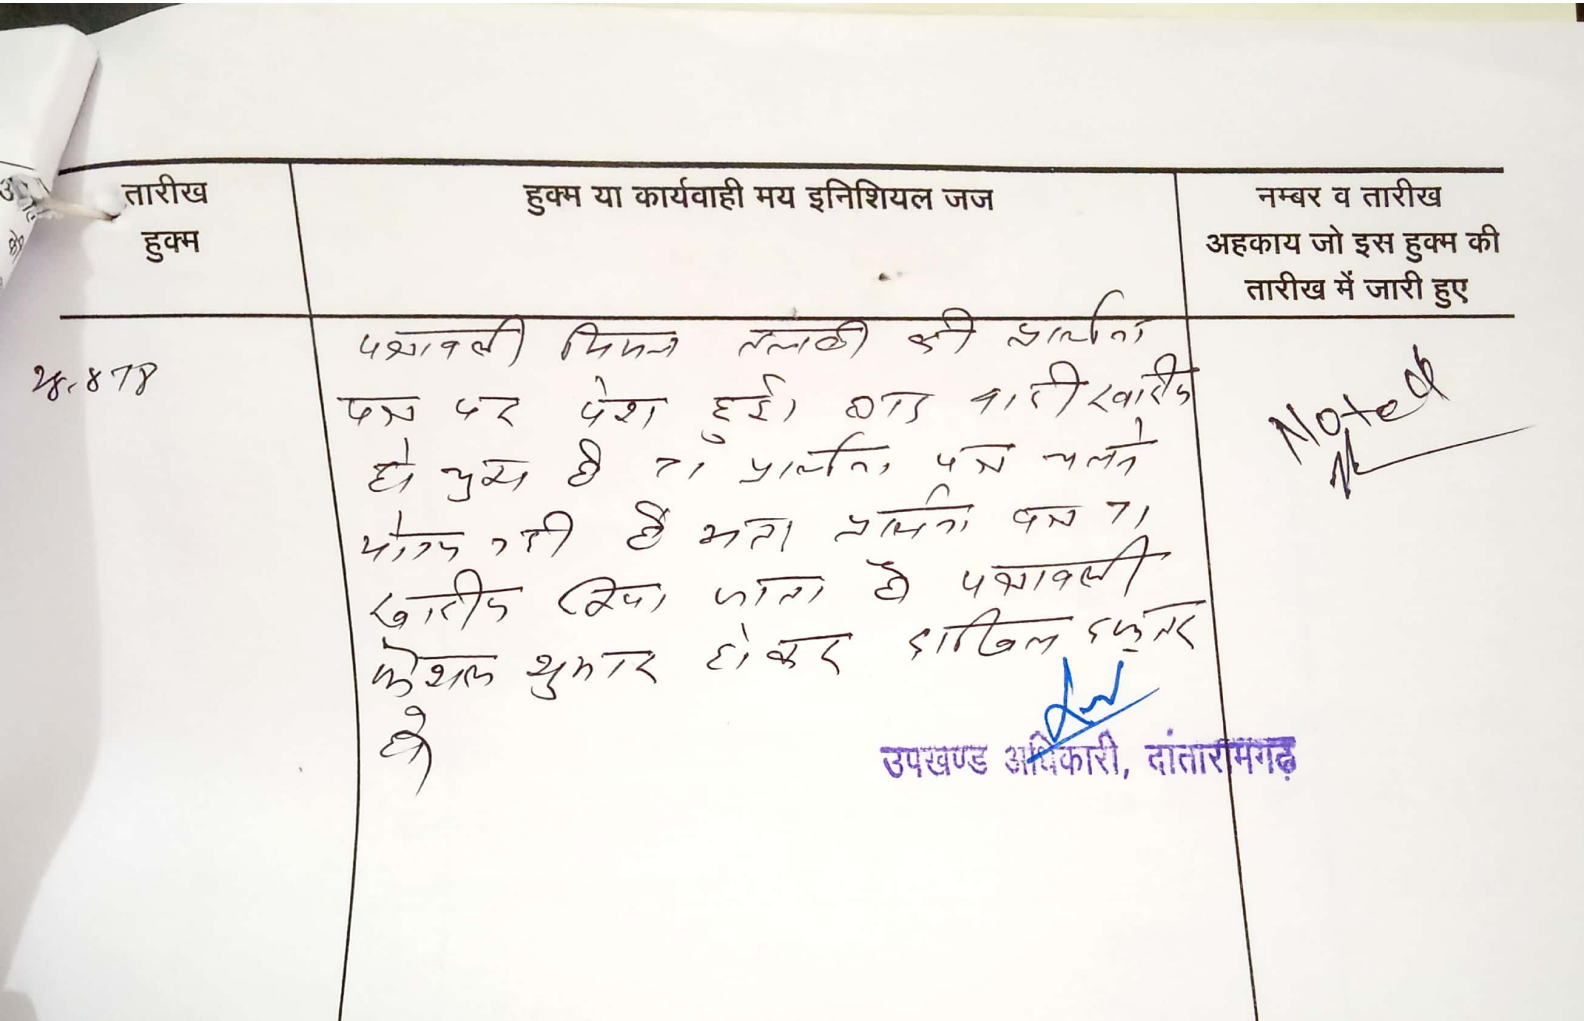 तारीख
हुक्म
हुक्म या कार्यवाही मय इनिशियल जज
नम्बर व तारीख
अहकाय जो इस हुक्म की
तारीख में जारी हुए
पत्रावली तलबी की प्रार्थना
पत्र पर पेश हुई। वादी खारीज
हो चुका है प्रार्थना पत्र चलने
योग्य नही है अतः प्रार्थना पत्र
खारीज किया जाता है पत्रावली
फैशल शुमार होकर दाखिल दफ्तर
हो
Noted
उपखण्ड अधिकारी, दांतारामगढ़